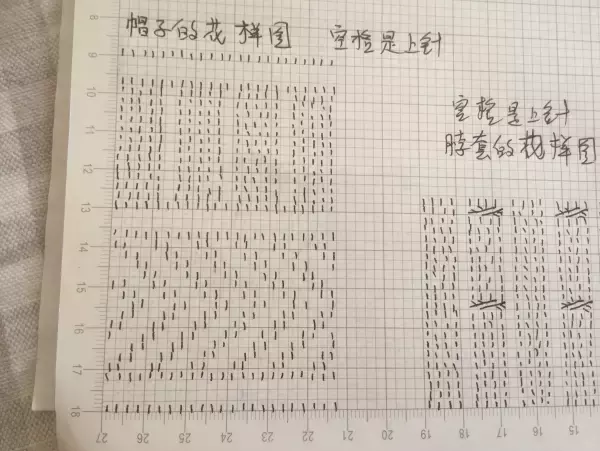 帽子的花样图 空格是上针
空格是上针
脖套的花样图
9
10
11
12
13
14
15
16
17
18
27 26 25 24 23 22 21 20 19 18 17 16 15